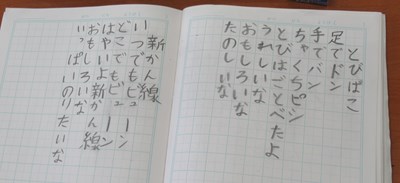 とびばこ
足でドン
手でバン
ちゃくちピシ
とびばことべたよ
うれしいな
おもしろいな
たのしいな
新かん線
いつでもビューン
どこでもビューン
はやいよ新かん線
おもしろいな
いっぱいのりたいな